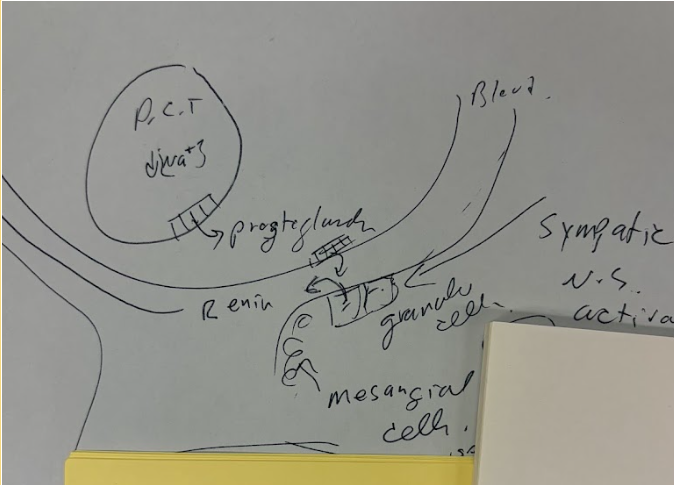 Blood.
P.C.T
↓[Na+]
prosteglandn
Sympatic
N.S.
activa
Renin
granule
cell.
mesangial
cell.